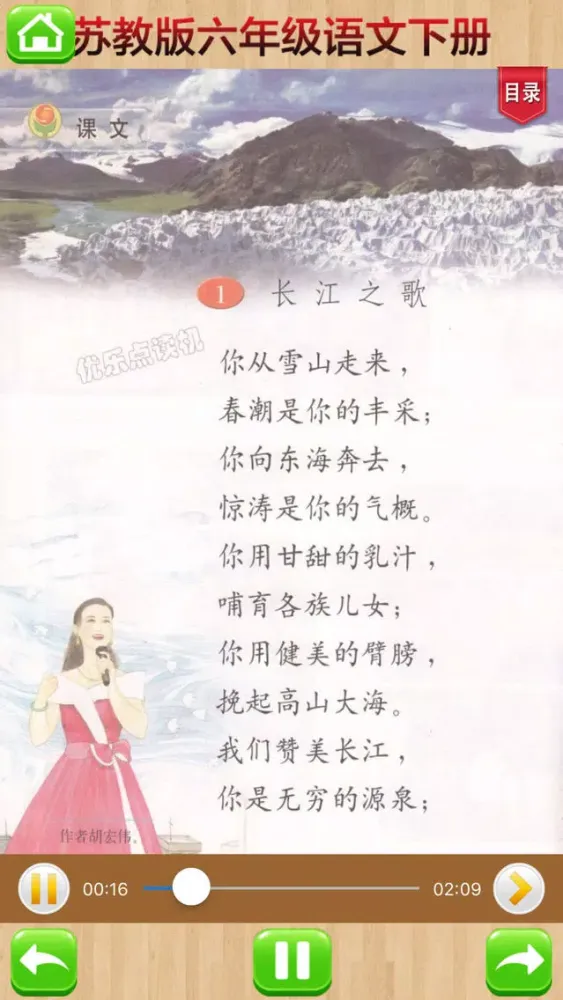 苏教版六年级语文下册
目录
课文
1 长江之歌
优乐点读机
你从雪山走来，
春潮是你的丰采；
你向东海奔去，
惊涛是你的气概。
你用甘甜的乳汁，
哺育各族儿女；
你用健美的臂膀，
挽起高山大海。
我们赞美长江，
你是无穷的源泉；
作者胡宏伟。
00:16
02:09